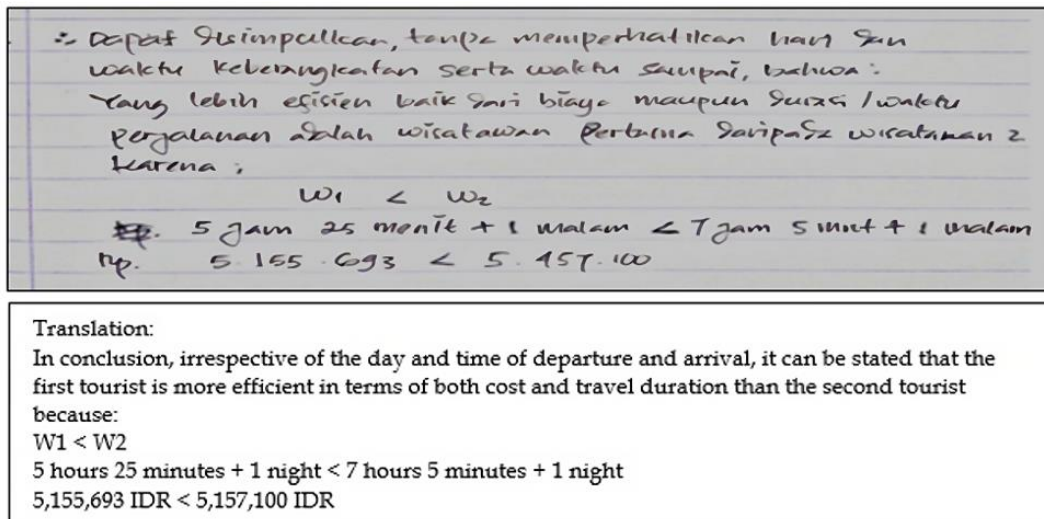 ∴ Dapat disimpulkan, tanpa memperhatikan hari dan
waktu keberangkatan serta waktu sampai, bahwa :
Yang lebih efisien baik dari biaya maupun durasi / waktu
perjalanan adalah wisatawan Pertama daripada wisatawan 2
karena :
W1 < W2
5 jam 25 menit + 1 malam < 7 jam 5 mnt + 1 malam
Rp. 5.155.693 < 5.157.100
Translation:
In conclusion, irrespective of the day and time of departure and arrival, it can be stated that the
first tourist is more efficient in terms of both cost and travel duration than the second tourist
because:
W1 < W2
5 hours 25 minutes + 1 night < 7 hours 5 minutes + 1 night
5,155,693 IDR < 5,157,100 IDR